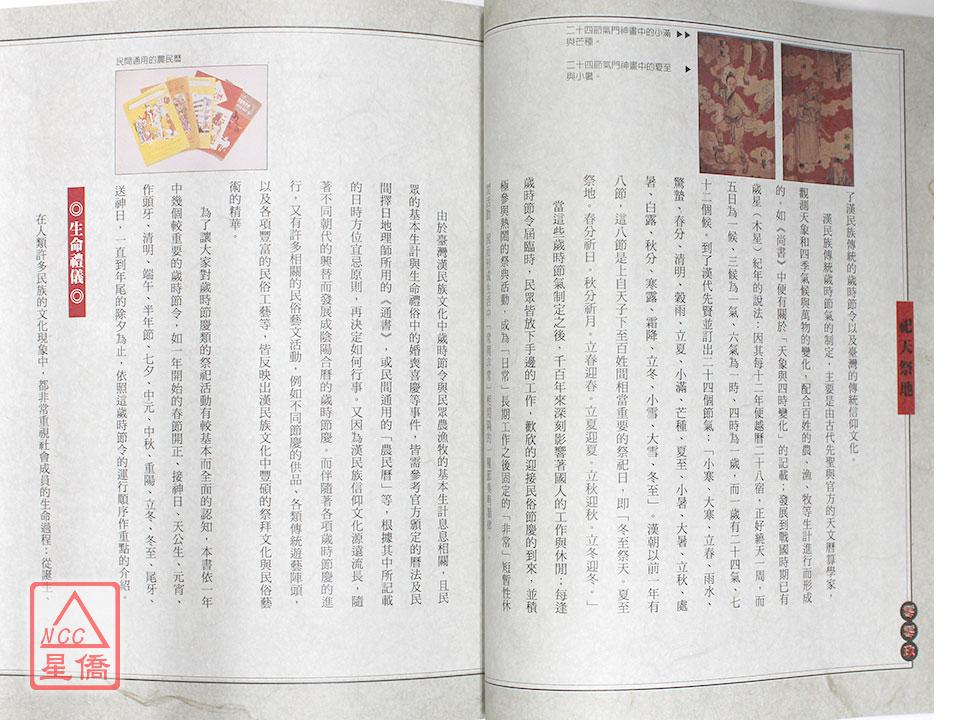 祀天祭地
二十四節氣門神畫中的小滿
與芒種。
二十四節氣門神畫中的夏至
與小暑。
了漢民族傳統的歲時節令以及臺灣的傳統信仰文化。
漢民族傳統歲時節氣的制定，主要是由古代先聖與官方的天文曆算學家，
觀測天象和四季氣候與萬物的變化，配合百姓的農、漁、牧等生計進行而形成
的，如《尚書》中便有關於「天象與四時變化」的記載，發展到戰國時期已有
歲星（木星）紀年的說法：因其每十二年便越曆二十八宿，正好繞天一周，而
五日為一候、三候為一氣、六氣為一時、四時為一歲，而一歲有二十四氣、七
十二個候。到了漢代先賢並訂出二十四個節氣：「小寒、大寒、立春、雨水、
驚蟄、春分、清明、穀雨、立夏、小滿、芒種、夏至、小暑、大暑、立秋、處
暑、白露、秋分、寒露、霜降、立冬、小雪、大雪、冬至」。漢朝以前一年有
八節，這八節是上自天子下至百姓間相當重要的祭祀日，即「冬至祭天。夏至
祭地。春分祈日。秋分祈月。立春迎春。立夏迎夏。立秋迎秋。立冬迎冬。」
當這些歲時節氣制定之後，千百年來深刻影響著國人的工作與休閒；每逢
歲時節令屆臨時，民眾皆放下手邊的工作，歡欣的迎接民俗節慶的到來，並積
極參與熱鬧的祭典活動，成為「日常」長期工作之後固定的「非常」短暫性休
民間通用的農民曆
由於臺灣漢民族文化中歲時節令與民眾農漁牧的基本生計息息相關，且民
眾的基本生計與生命禮俗中的婚喪喜慶等事件，皆需參考官方頒定的曆法及民
間擇日地理師所用的《通書》，或民間通用的「農民曆」等，根據其中所記載
的日時方位宜忌原則，再決定如何行事。又因為漢民族信仰文化源遠流長，隨
著不同朝代的興替而發展成陰陽合曆的歲時節慶。而伴隨著各項歲時節慶的進
行，又有許多相關的民俗藝文活動，例如不同節慶的供品、各類傳統遊藝陣頭，
以及各項豐富的民俗工藝等，皆反映出漢民族文化中豐碩的祭拜文化與民俗藝
術的精華。
為了讓大家對歲時節慶類的祭祀活動有較基本而全面的認知，本書依一年
中幾個較重要的歲時節令，如一年開始的春節開正、接神日、天公生、元宵、
作頭牙、清明、端午、半年節、七夕、中元、中秋、重陽、立冬、冬至、尾牙、
送神日，一直到年尾的除夕為止，依照這歲時節令的運行順序作重點的介紹。
◎生命禮儀◎
在人類許多民族的文化現象中，都非常重視社會成員的生命過程：從誕生、
NCC
星僑